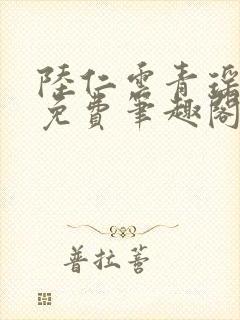 陸仁雲青瑤
免費筆趣閣
普拉薈